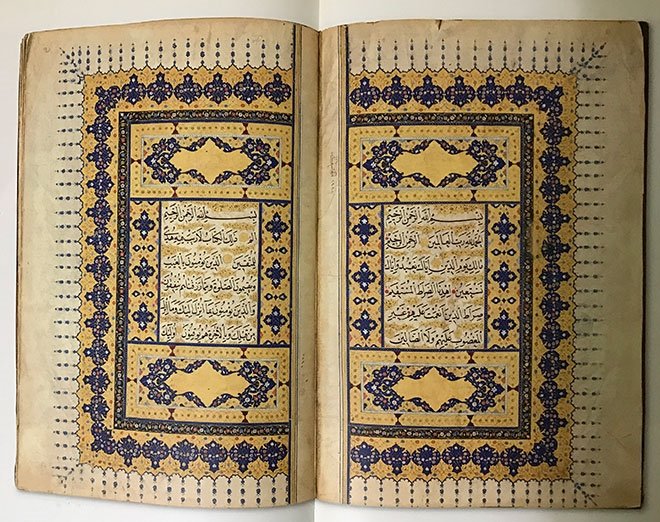 بسم الله الرحمن الرحيم
الحمد لله رب العالمين
الرحمن الرحيم
ملك يوم الدين اياك نعبد واياك
نستعين اهدنا الصراط المستقيم
صراط الذين انعمت عليهم غير
المغضوب عليهم ولا الضالين
بسم الله الرحمن الرحيم
الم ذلك الكتاب لا ريب فيه هدى
للمتقين الذين يؤمنون بالغيب
ويقيمون الصلوة ومما رزقناهم ينفقون
والذين يؤمنون بما انزل اليك وما انزل
من قبلك وبالاخرة هم يوقنون اولئك